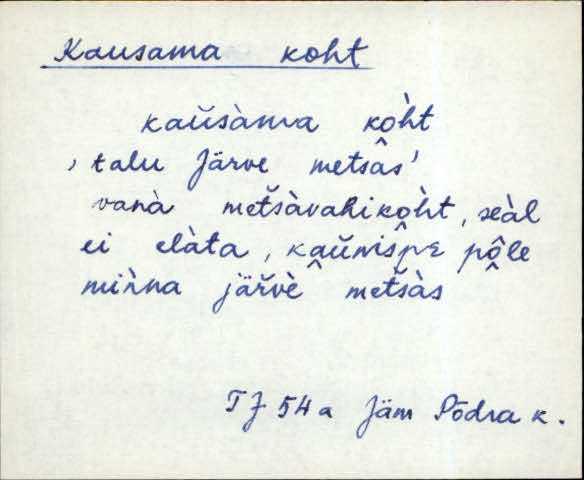 Kausama koht
kaŭsàma kòht
, talu Järve metsas'
vanà metšàvahikòht, seàl
ei elàta, kaŭnišpɛ pôle
minna järvè metšàs
TJ 54a Jäm Põdra k.